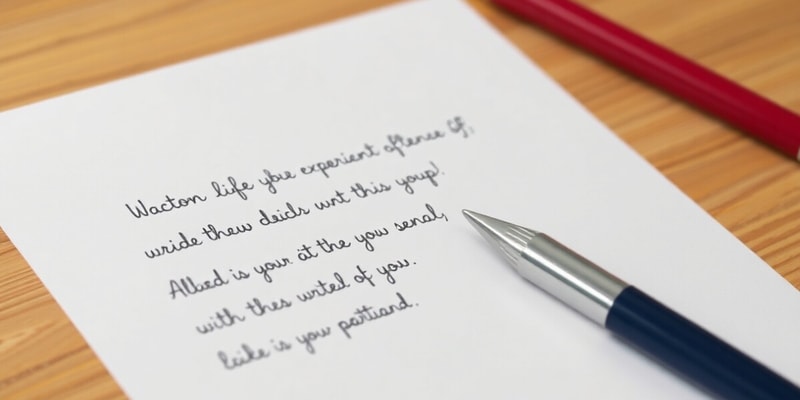 Wacton life ybue experient oftence of:
wride thew deids wnt this youp!
Allbed is your ät the yow senal,
with thes wrtel of you.
is you pattiand.